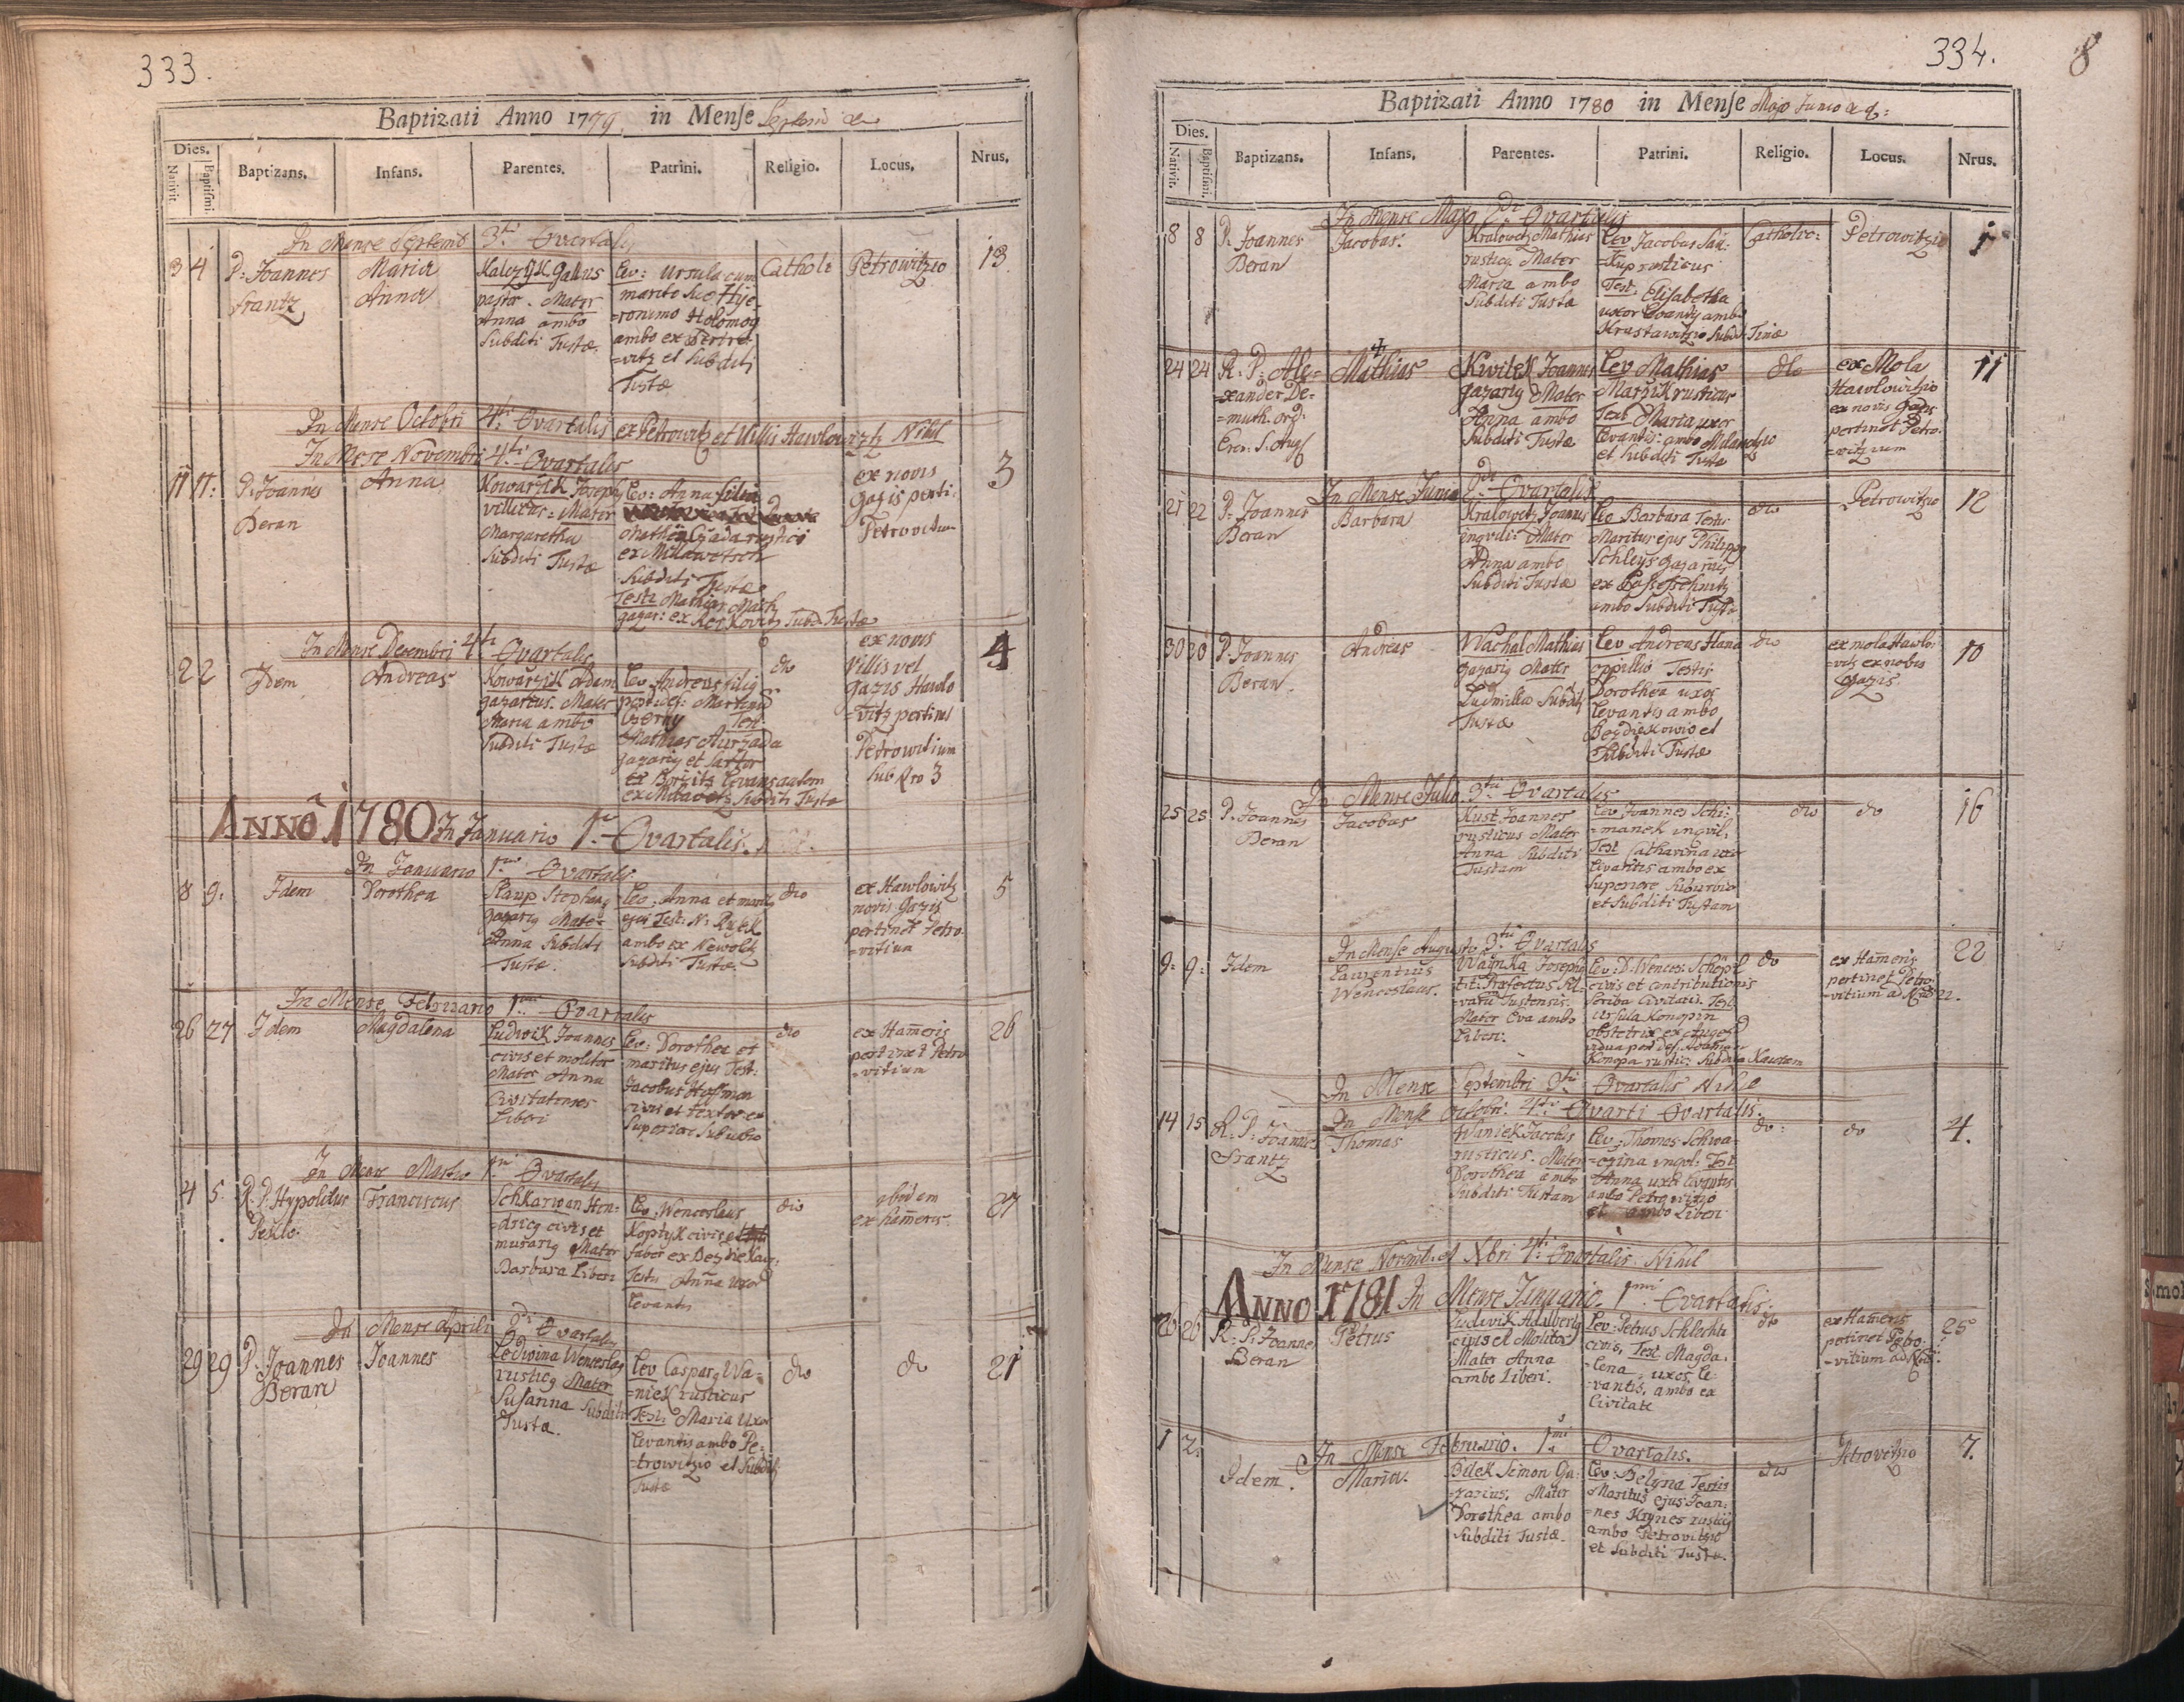 333.
Baptizati Anno 1779 in Mense
Dies. Nativit. Baptismi Baptizans. Infans. Parentes. Patrini. Religio. Locus. Nrus.
In Mense Septemb 3tii Quartalis
3 4 P: Joannes Frantz
Maria
Anna
Kalczyk Gallus
pastor. Mater
Anna ambo
Subditi Tustæ.
Lev: Ursula cum
marito suo Hye-
=ronimo
ambo ex
=vitz et Subditi
Tustæ
Cathol:
Petrowitzio
13.
In Mense Octobri 4ti Quartalis ex Petrowitz et Villis Hawlowitz Nihil
In Mense Novembri 4ti Quartalis
11 11: P: Joannes
Beran
Anna
Kowarzik Joseph
villicus: Mater
Margaretha
Subditi Tustæ
Lev: Anna filia
rustici
ex
Subditi Tustæ
Testi Mathias
gazar: ex Subd: Tustæ
ex novis
gazis perti:
Petrovitium
3
In Mense Decembri 4ti Quartalis
2 2 Idem
Andreas
Kowarzik Adam
gazarius. Mater
Maria ambo
Subditi Tustæ
Lev: Andreas filius
post def: Martinum
Czerny Test:
Mathias
gazarig et Sartor
ex Levans autem
ex Subditi Tustæ
dto
ex novis
Villis vel
gazis Hawlo
=vitz pertinet
Petrowitium
Sub Nro 3
4
ANNO 1780 In Januario 1mi Quartalis.
In Januario 1mi Quartalis.
8 9: Idem
Dorothea
Slaup Stephang
gazarig Mater
Anna Subditi
Tustæ.
Lev: Anna et marit
ejus Test: N:
ambo ex
Subditi Tustæ.
dto
ex Hawlowitz
novis Gazis
pertinet Petro
=vitium
5
In Mense Februario 1mi Quartalis
26 27 Idem
Magdalena
Ludwik Joannes
civis et molitor
Mater Anna
Civitatenses
Liberi
Lev: Dorothea et
maritus ejus Test:
Jacobus Hoffman
civis et textor ex
Superiore Suburbio
dto
ex Hameris
pertinet Petro
=vitium
26
In Mense Martio 1mi Quartalis
4 5 R. P. Hypolitus
Peskle.
Franciscus
Schkarwan Hen=
=dricg civis et
murarig Mater
Barbara Liberi
Lev: Wenceslaus
Koptyk civis et
faber ex
Testis Anna uxor
levantis
dto
ibidem
ex hameris.
27
In Mense Aprili 2di Quartalis
29 29 P: Joannes
Beran
Joannes
Ledwina Wenceslag
rusticg Mater
Susanna Subditi
Tustæ.
Lev Casparg Wa-
=niek rusticus
Test: Maria Uxor
levantis ambo Pe=
=trowitzio et Subditi
Tustæ
dto
do
21
334.
8
Baptizati Anno 1780 in Mense Majo Junio
Dies. Nativit. Baptismi. Baptizans. Infans. Parentes. Patrini. Religio. Locus. Nrus.
In Mense Majo 2di Quartalis
8 8 P: Joannes
Beran
Jacobus.
Kralowetz Mathias
rusticg Mater
Maria ambo
Subditi Tustæ
Lev Jacobus
rusticus
Test: Elisabetha
uxor ambo
Subd: Tustæ
Catholic:
Petrowitzio
1
24 24 R: P: Ale=
=xander De=
=muth. ord:
Erem: S: Aug
Mathias
Kwitek Joannes
gazarig Mater
Anna ambo
Subditi Tustæ
Lev Mathias
Marzik rusticus
Test Maria uxor
Levantis: ambo Milawetzio
et Subditi Tustæ
dto
ex Mola
Hawlowitzio
ex novis gazis
pertinet Petro
=vitzium
11
In Mense Junio 2di Quartalis
21 22 P: Joannes
Beran
Barbara
Kralowetz Joannes
inqvilig Mater
Anna ambo
Subditi Tustæ
Lev Barbara Testis
Maritus ejus Philippg
Schleys gazarius
ex
ambo Subditi Tustæ
dto
Petrowitzio
12
30 30 P: Joannes
Beran.
Andreas
Wachal Mathias
gazarig Mater
Ludmilla Subditi
Tustæ
Lev Andreas Hana
oppilio Testis
Dorothea uxor
Levantis ambo
et
Subditi Tustæ
dto
ex mola Hawlo
=vitz ex novis
Gazis.
10
In Mense Julio 3tii Quartalis
25 25 P: Joannes
Beran
Jacobus
Kust Joannes
rusticus Mater
Anna Subditi
Tustam
Lev Joannes Schi:
=manek inqvil:
Test Catharina uxor
Levantis ambo ex
Superiore Suburbio
et Subditi Tustam
dto
do
16
In Mense Augusto 3tii Quartalis
9: 9: Idem
Laurentius
Wenceslaus.
Waynka Josephg
tit: Præfectus Sil=
=varu Tustensis.
Mater Eva ambo
Liberi.
Lev: D: Wences: Schöpl
civis et contributionis
Scriba Civitatis. Test
Ursula Konopin
obstetrix ex
vidua post def:
Konopa rustic: Subdita
do
ex Hameris
pertinet Petro
=vitium ad Nro 22.
22
In Mense Septembri 3tii Quartalis Nihil
In Mense Octobri. 4ti Quarti Quartalis.
14 15 R. P: Joannes
Frantz
Thomas
Waniek Jacobus
rusticus. Mater
Dorothea ambo
Subditi Tustam
Lev: Thomas Schwa-
=rzina inqvl: Test
Anna uxor levantis
ambo Petrovitzio
et ambo Liberi
do:
do
4.
In Mense Novemb: et Xbri 4ti Quartalis Nihil
ANNO 1781 In Mense Januario. 1mi Quartalis.
26 26 R: P: Joannes
Beran
Petrus
Ludwik Adalbertg
civis et Molitor
Mater Anna
ambo Liberi.
Lev: Petrus Schlecht
civis, Test Magda.
=lena, uxor, le
=vantis, ambo ex
Civitate
do
ex Hameris
pertinet Petro-
=vitium
25
In Mense Februario. 1mi Quartalis.
1 2: Idem.
Maria.
Bilek Simon Ga:
=zarius. Mater
Dorothea ambo
Subditi Tustæ.
Lev: Testis
Maritus ejus Joan:
=nes rusticg
ambo Petrovitzio
et Subditi Tustæ.
dto
Petrovitzio
7.